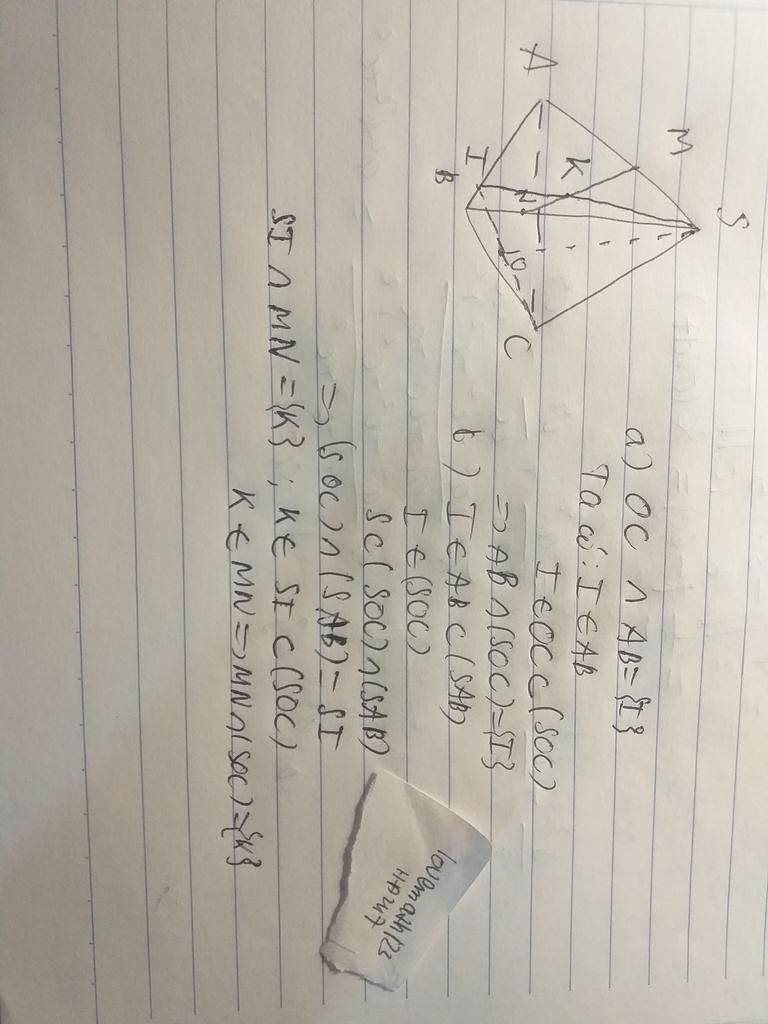 S
M
A
K
I
N
B
O
C
a) OC ∩ AB = {I}
Ta có: I ∈ AB
I ∈ OC ⊂ (SOC)
=> AB ∩ (SOC) = {I}
b) I ∈ AB ⊂ (SAB)
I ∈ (SOC)
S ⊂ (SOC) ∩ (SAB)
=> (SOC) ∩ (SAB) = SI
SI ∩ MN = {K} ; K ∈ SI ⊂ (SOC)
K ∈ MN => MN ∩ (SOC) = {K}